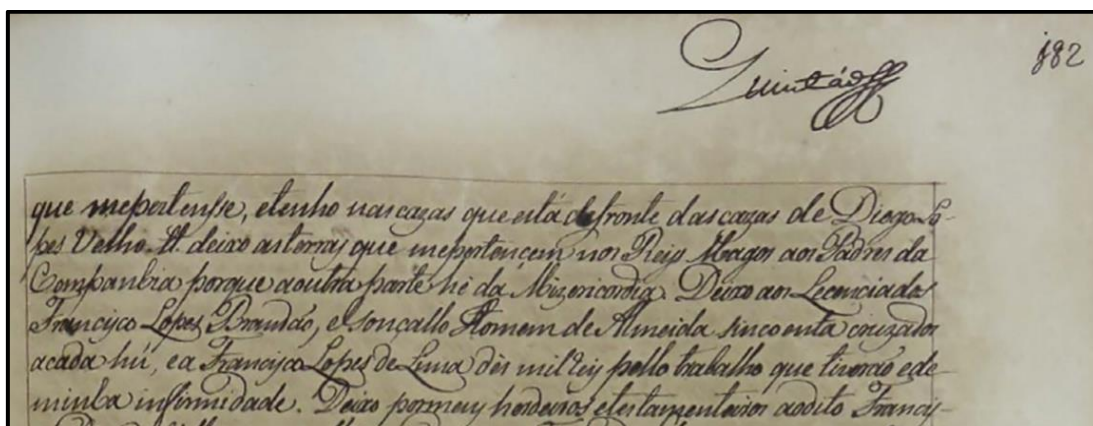 182
que mepertensse, etenho nas cazas que está defronte das cazas de Diogo Lo-
pes Velho. It. deixo as terras que mepertencem nos Reys Magos aos Padres da
Companhia porque aoutra parte hé da Mizericordia. Deixo aos Lecenciados
Francisco Lopes Brandão, e Gonçallo Homem de Almeida sincoenta cruzados
acada hũ, ea Francisco Lopes de Lima dés mil reis pello trabalho que tiverão ede
minha infirmidade. Deixo pormeus herdeiros etestamenteiros aodito Francis-